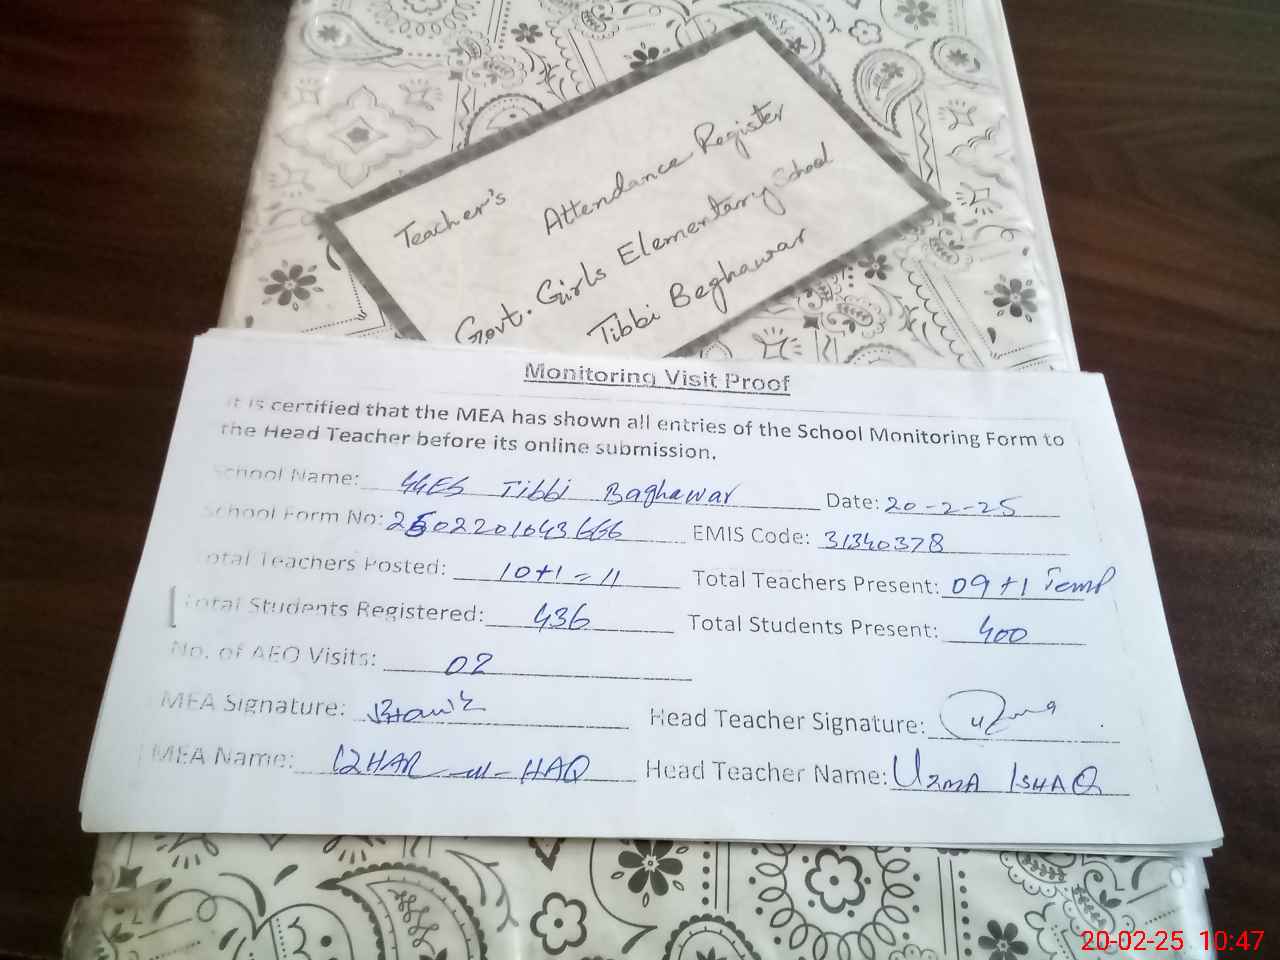 Teacher's Attendance Register
Govt. Girls Elementary School
Tibbi Beghawar
Monitoring Visit Proof
It is certified that the MEA has shown all entries of the School Monitoring Form to
the Head Teacher before its online submission.
School Name: GGES Tibbi Baghawar Date: 20-2-25
School Form No: 2502201043666 EMIS Code: 31340378
Total Teachers Posted: 10+1=11 Total Teachers Present: 09+1 Temp
Total Students Registered: 436 Total Students Present: 400
No. of AEO Visits: 02
MEA Signature: Head Teacher Signature: Uzma
MEA Name: IZHAR-ul-HAQ Head Teacher Name: UZMA ISHAQ
20-02-25 10:47